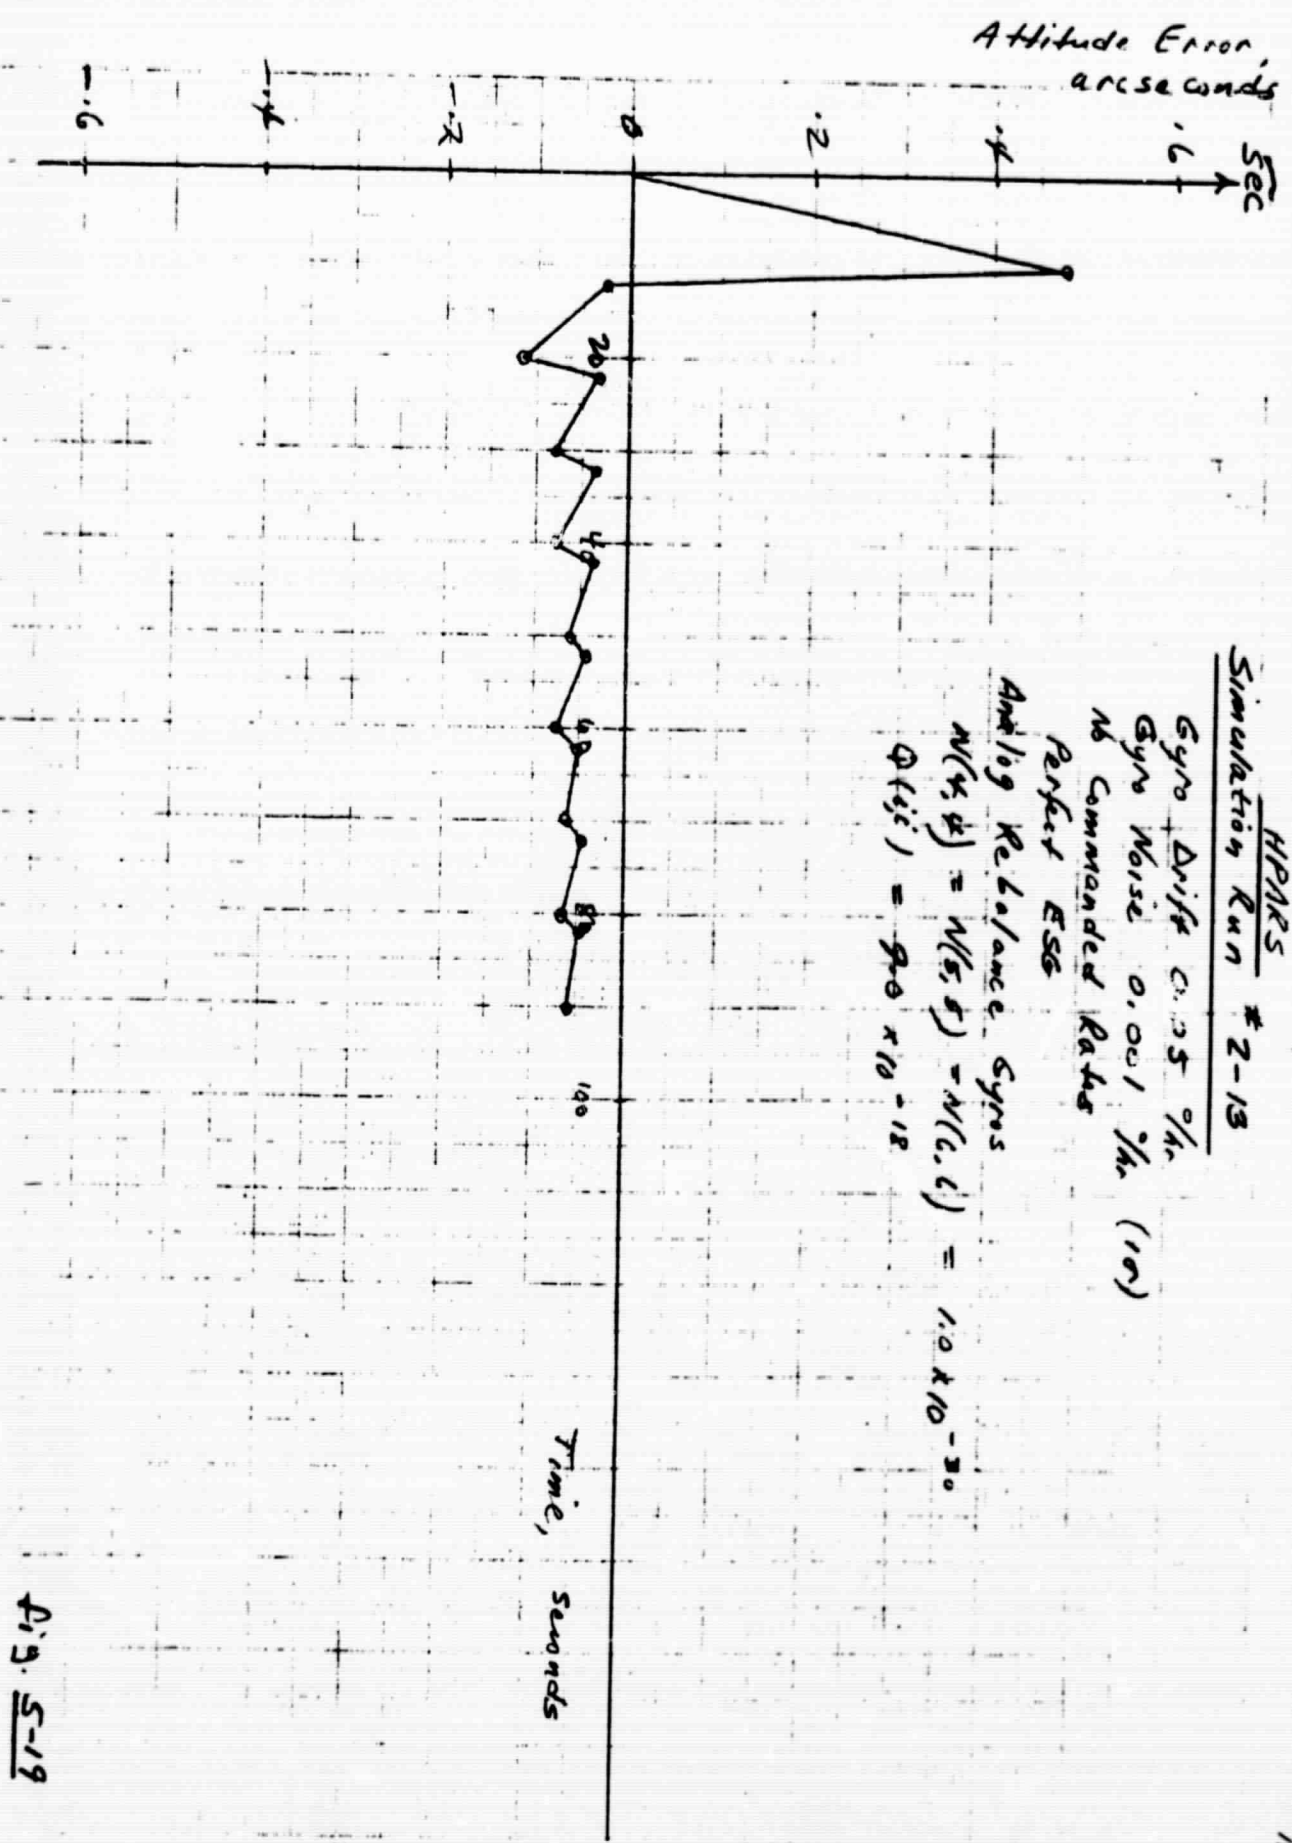 Attitude Error,
arcseconds
Sec
.6
.4
.2
0
-.2
-.4
-.6
20
40
60
80
100
Time, seconds
HPARS
Simulation Run #2-13
Gyro Drift 0.05 °/hr
Gyro Noise 0.001 °/hr (1σ)
No Commanded Rates
Perfect ESG
Analog Rebalance Gyros
N(4,4) = N(5,5) = N(6,6) = 1.0 x 10 -30
Q(i,i) = x 10 -18
Fig. 5-19